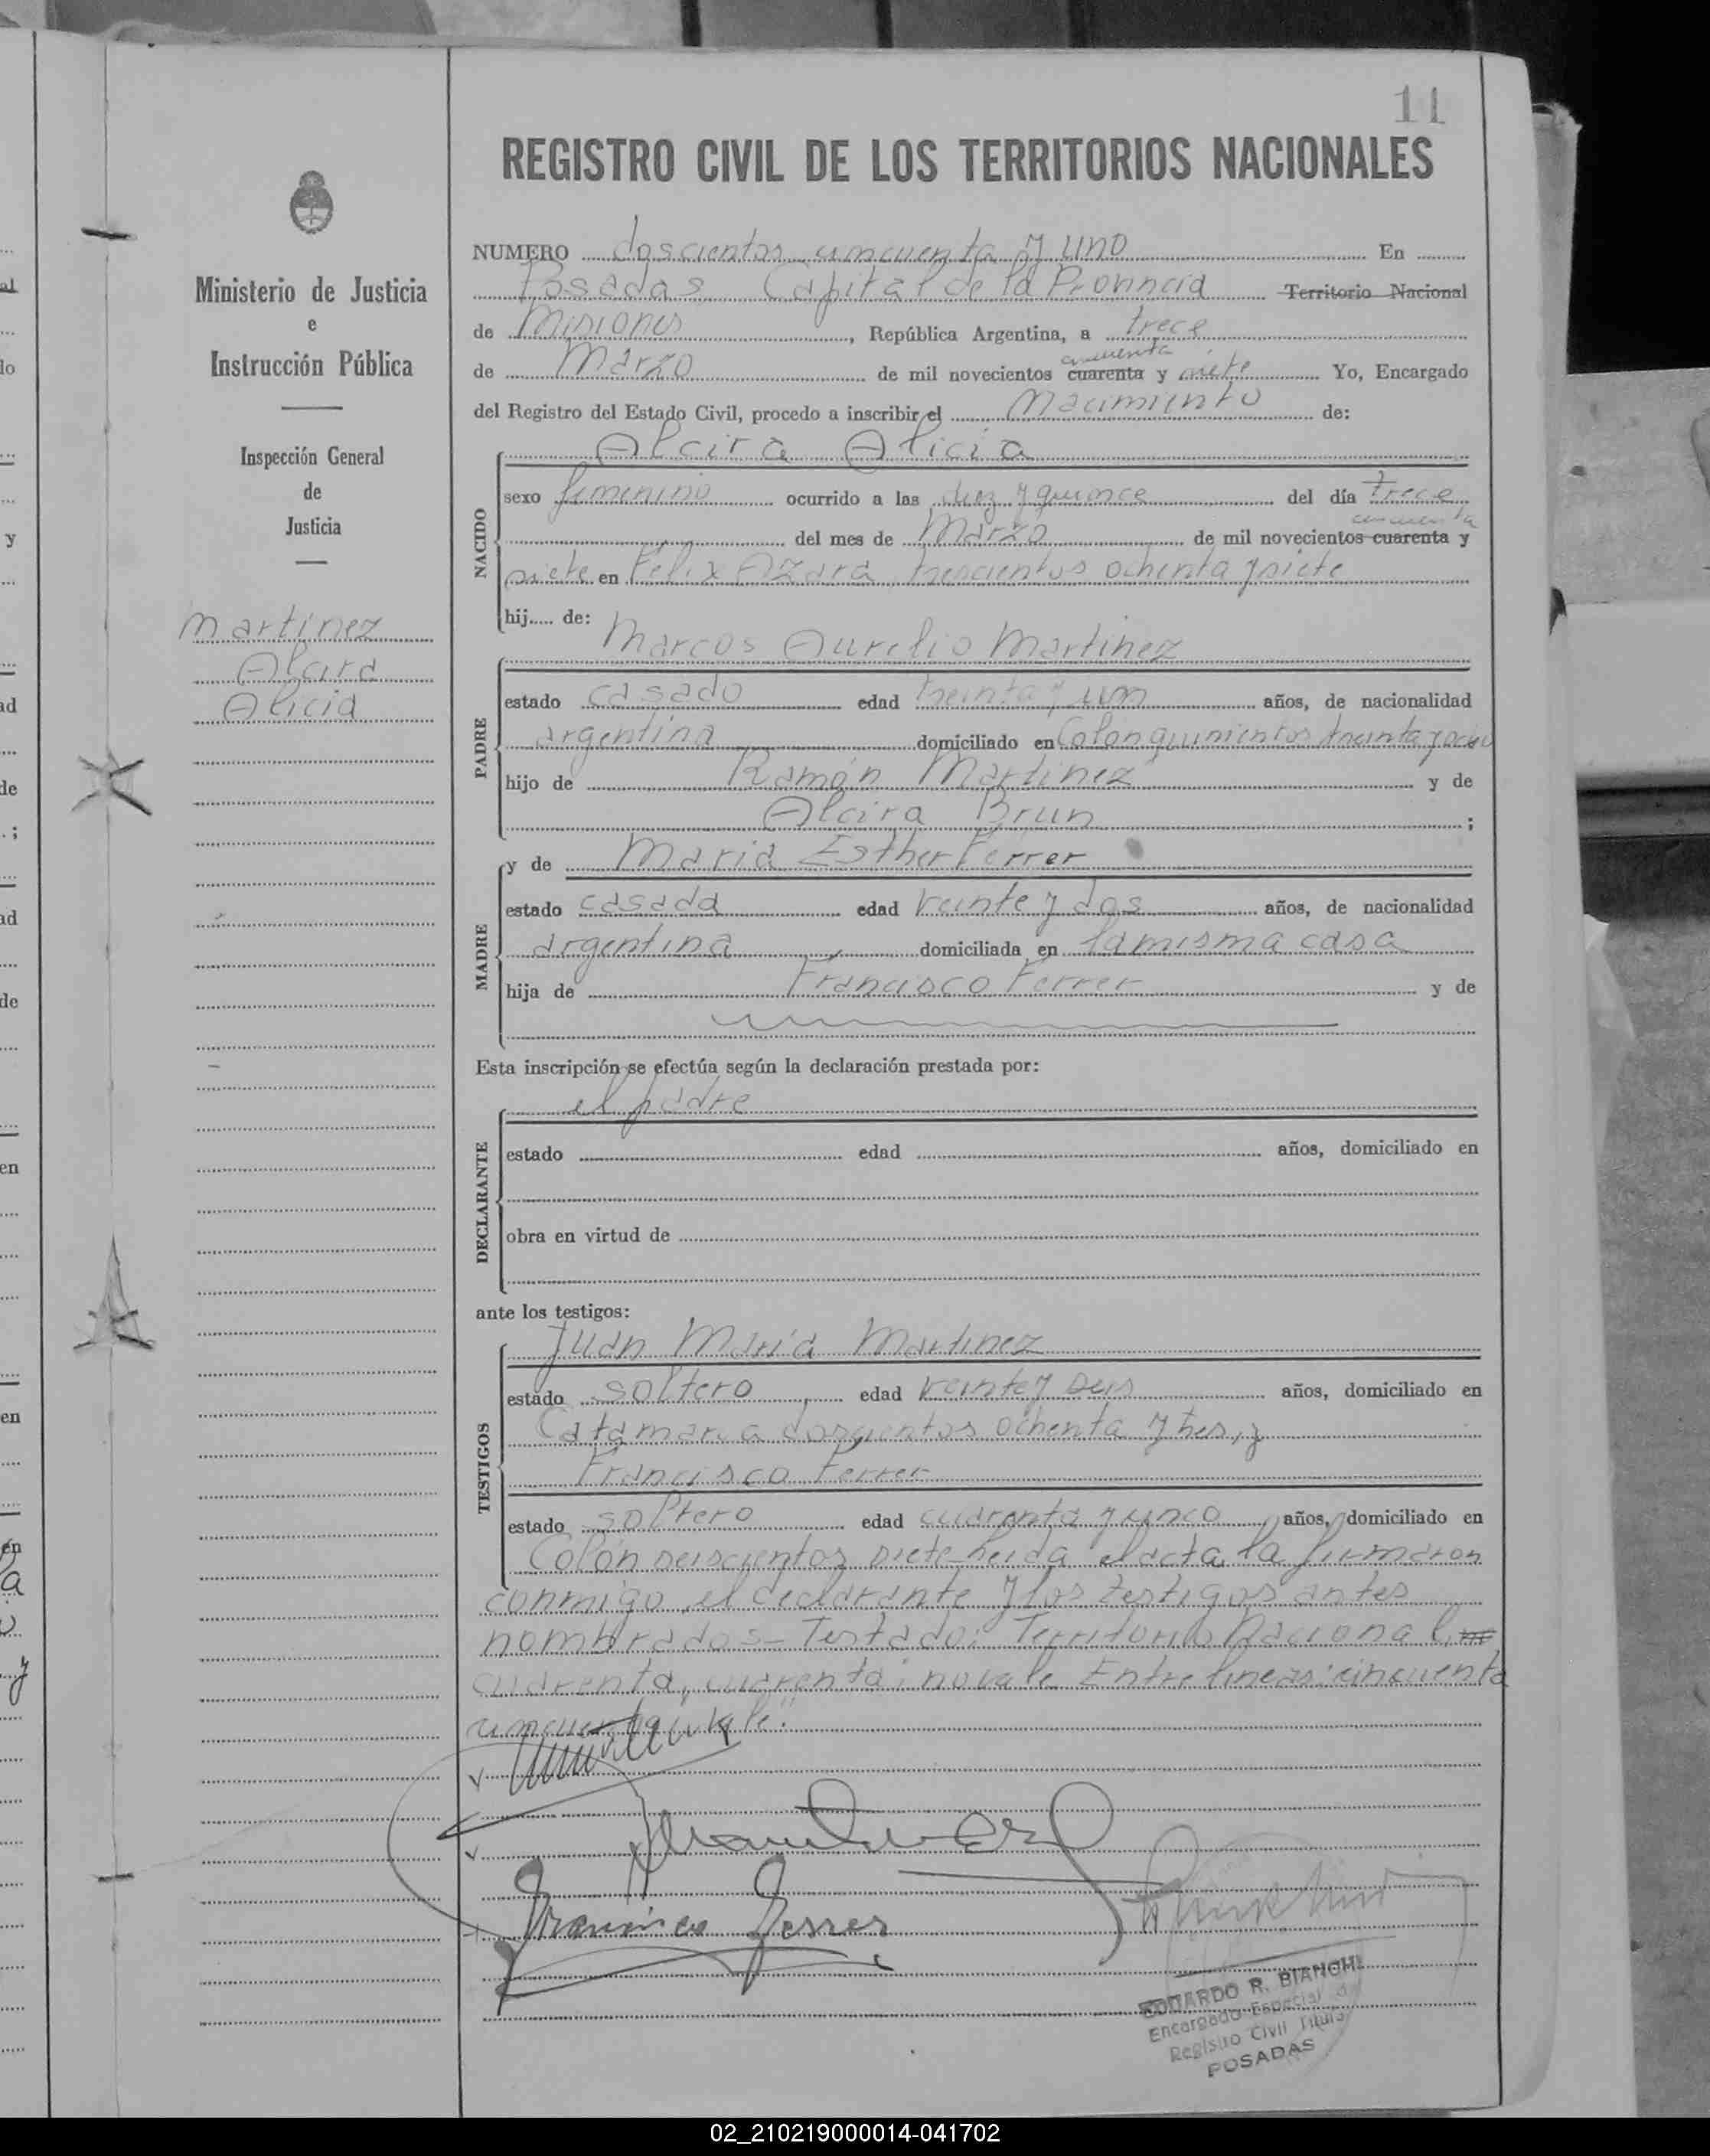 11
REGISTRO CIVIL DE LOS TERRITORIOS NACIONALES
Ministerio de Justicia
e
Instrucción Pública
Inspección General
de
Justicia
Martinez
Alcira
Alicia
NUMERO doscientos cincuenta y uno En
Posadas Capital de la Provincia Territorio Nacional
de Misiones, República Argentina, a trece
cincuenta
de Marzo de mil novecientos cuarenta y siete Yo, Encargado
del Registro del Estado Civil, procedo a inscribir el nacimiento de:
NACIDO
Alcira Alicia
sexo femenino ocurrido a las diez y quince del día trece
cincuenta
del mes de Marzo de mil novecientos cuarenta y
siete en Felix Azara trescientos ochenta y siete
hij..... de:
PADRE
Marcos Aurelio Martinez
estado casado edad treinta y un años, de nacionalidad
argentina domiciliado en Colon quinientos
hijo de Ramón Martinez y de
Alcira Brun ;
MADRE
y de Maria Esther Ferrer
estado casada edad veinte y dos años, de nacionalidad
argentina domiciliada en la misma casa
hija de Francisco Ferrer y de
Esta inscripción se efectúa según la declaración prestada por:
DECLARANTE
el padre
estado edad años, domiciliado en
obra en virtud de
ante los testigos:
TESTIGOS
Juan Maria Martinez
estado soltero edad veinte y seis años, domiciliado en
Catamarca doscientos ochenta y tres, y
Francisco Ferrer
estado soltero edad cuarenta y cinco años, domiciliado en
Colón seiscientos siete leida el acta la firmaron
conmigo el declarante y los testigos antes
nombrados - Testado: Territorio Nacional
cuarenta, cuarenta: no vale Entre lineas: cincuenta
cincuenta: vale.
Francisco Ferrer
EDUARDO R. BIANCHI
Encargado Especial
Registro Civil Titular
POSADAS
02_210219000014-041702